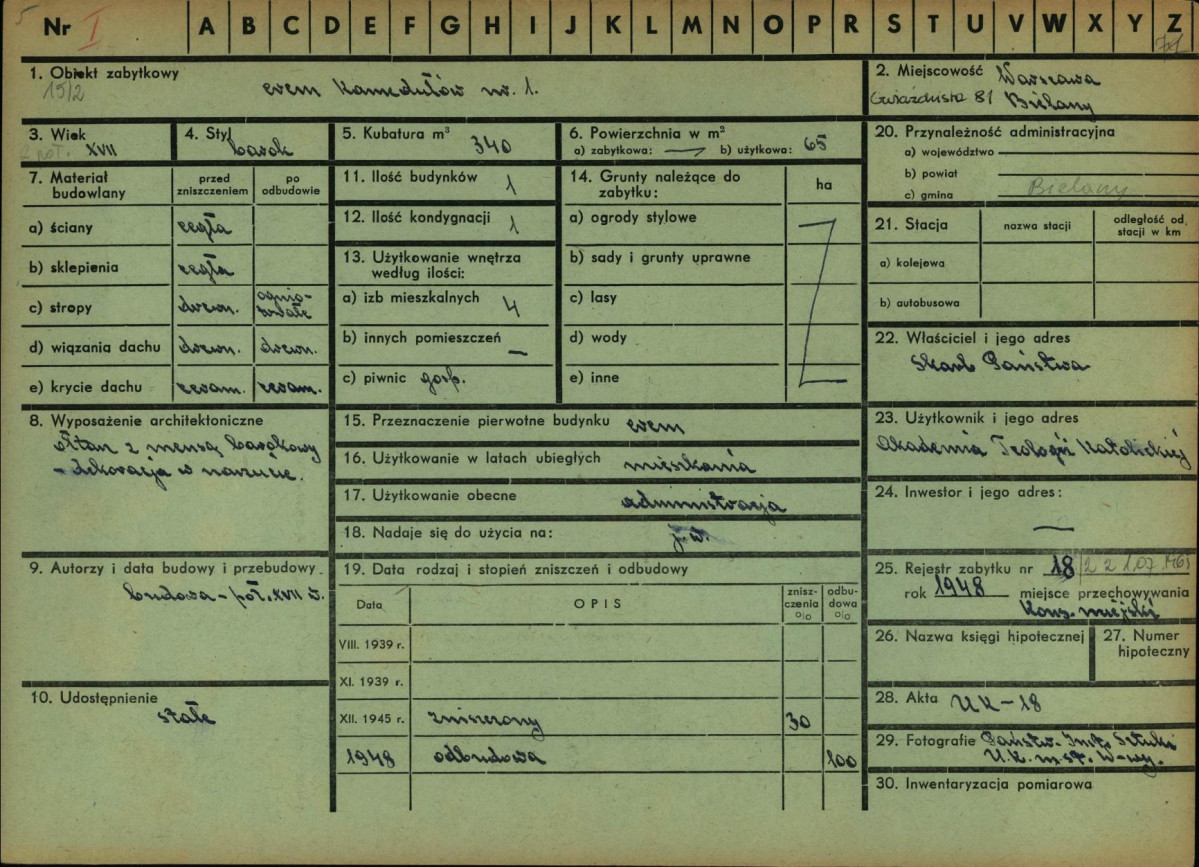 5
Nr I A B C D E F G H I J K L M N O P R S T U V W X Y Z
1. Obiekt zabytkowy
15/2
erem Kamedułów nr. 1.
2. Miejscowość Warszawa
Gwiaździsta 81 Bielany
3. Wiek
poł. XVII
4. Styl
barok
5. Kubatura m³
340
6. Powierzchnia w m²
a) zabytkowa: — b) użytkowa: 65
20. Przynależność administracyjna
a) województwo
b) powiat
c) gmina Bielany
7. Materiał budowlany
przed zniszczeniem
po odbudowie
a) ściany cegła
b) sklepienia cegła
c) stropy drewn. ognio-trwałe
d) wiązania dachu drewn. drewn.
e) krycie dachu ceram. ceram.
11. Ilość budynków 1
12. Ilość kondygnacji 1
13. Użytkowanie wnętrza
według ilości:
a) izb mieszkalnych 4
b) innych pomieszczeń —
c) piwnic gosp.
14. Grunty należące do
zabytku:
ha
a) ogrody stylowe
b) sady i grunty uprawne
c) lasy
d) wody
e) inne
21. Stacja
nazwa stacji
odległość od stacji w km
a) kolejowa
b) autobusowa
22. Właściciel i jego adres
Skarb Państwa
8. Wyposażenie architektoniczne
ołtarz z mensą barokowy
– dekoracja w narzucie.
15. Przeznaczenie pierwotne budynku erem
16. Użytkowanie w latach ubiegłych mieszkania
17. Użytkowanie obecne administracja
18. Nadaje się do użycia na: j.w.
23. Użytkownik i jego adres
Akademia Teologii Katolickiej
24. Inwestor i jego adres:
—
9. Autorzy i data budowy i przebudowy
budowa – poł. XVII w.
19. Data rodzaj i stopień zniszczeń i odbudowy
Data
OPIS
znisz-
czenia
o|o
odbu-
dowa
o|o
VIII. 1939 r.
XI. 1939 r.
XII. 1945 r. zniszczony 30
1948 odbudowa 100
25. Rejestr zabytku nr 18
rok 1948 miejsce przechowywania
Kons. miejski
26. Nazwa księgi hipotecznej
27. Numer
hipoteczny
10. Udostępnienie
stałe
28. Akta UK-18
29. Fotografie Państw. Inst. Sztuki
U.K. m. st. W-wy.
30. Inwentaryzacja pomiarowa